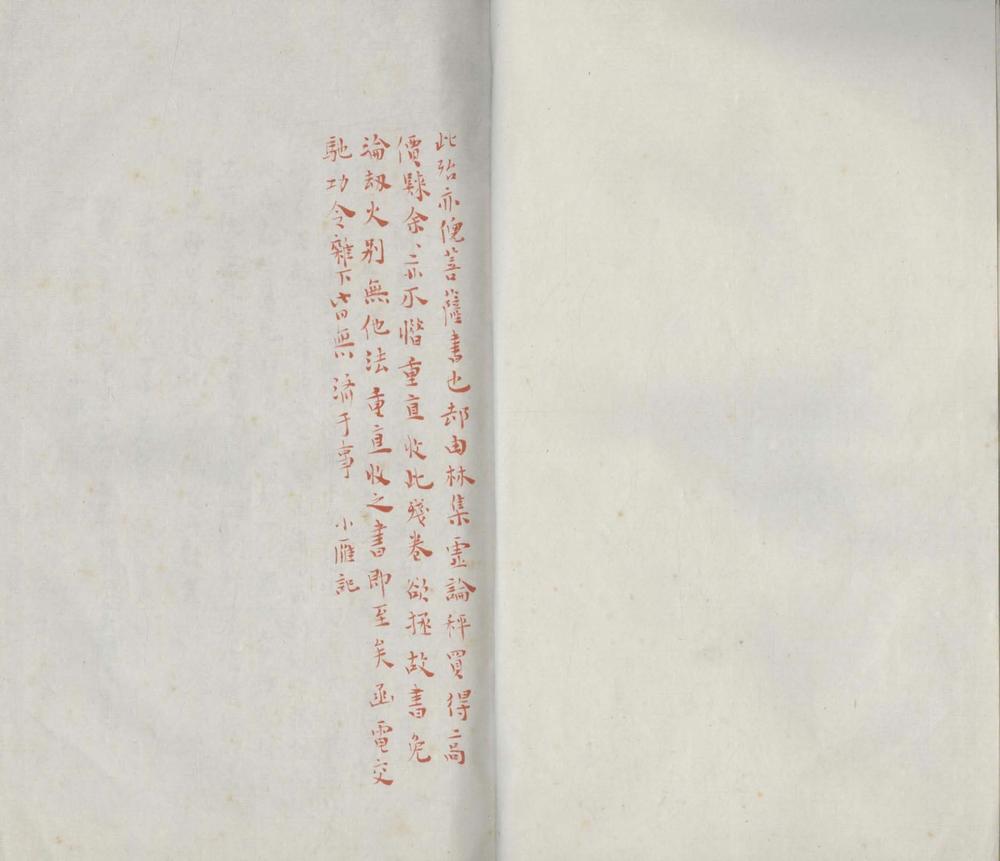 此殆亦傀菩薩書也郝由林集虛論秤買得二高
價賕余〻亦不惜重直收此殘卷欲拯故書免
淪刼火別無他法重直收之書即至矣函電交
馳功令雜下皆無濟于事 小雁記